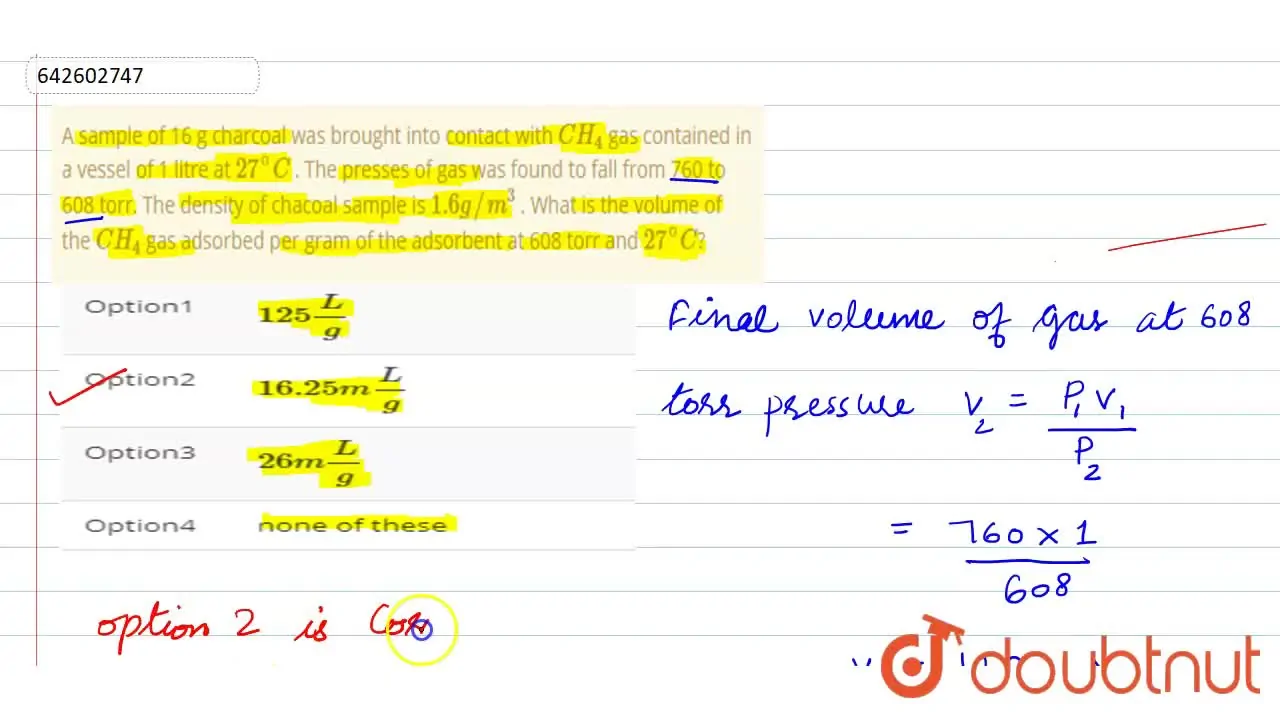 642602747
A sample of 16 g charcoal was brought into contact with CH₄ gas contained in
a vessel of 1 litre at 27°C. The presses of gas was found to fall from 760 to
608 torr. The density of chacoal sample is 1.6g/m³. What is the volume of
the CH₄ gas adsorbed per gram of the adsorbent at 608 torr and 27°C?
Option1 125 L/g
Option2 16.25m L/g
Option3 26m L/g
Option4 none of these
option 2 is Cor
Final volume of gas at 608
torr pressure V₂ = P₁V₁/P₂
= 760 × 1/608
doubtnut